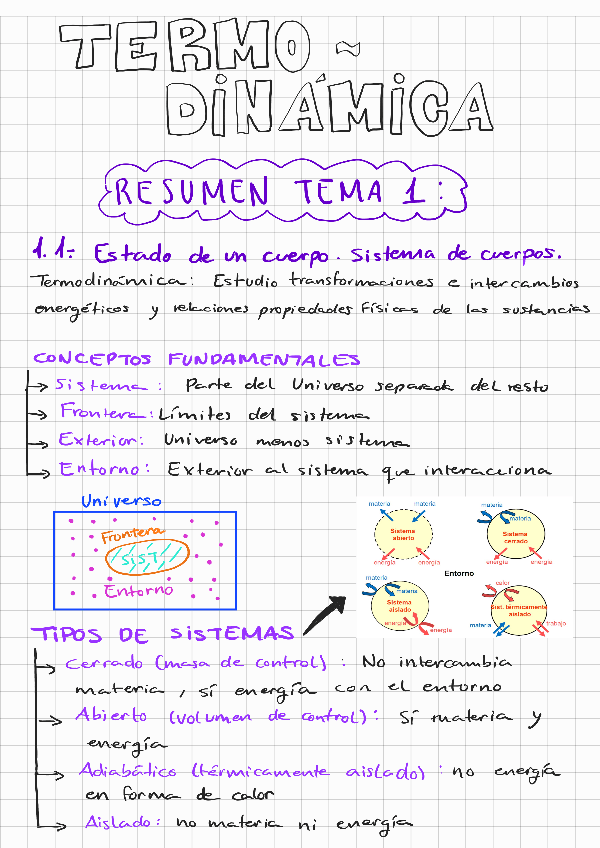 TERMO~
DINÁMICA
RESUMEN TEMA 1:
1.1: Estado de un cuerpo. Sistema de cuerpos.
Termodinámica: Estudio transformaciones e intercambios
energéticos y relaciones propiedades Físicas de las sustancias
CONCEPTOS FUNDAMENTALES
→ Sistema: Parte del Universo separada del resto
→ Frontera: Límites del sistema
→ Exterior: Universo menos sistema
→ Entorno: Exterior al sistema que interacciona
Universo
Frontera
SIST
Entorno
materia materia
Sistema
abierto
energía energía
materia
materia
Sistema
cerrado
energía energía
Entorno
materia
materia
Sistema
aislado
energía
energía
calor
Sist. térmicamente
aislado
materia trabajo
TIPOS DE SISTEMAS
→ Cerrado (masa de control): No intercambia
materia, sí energía con el entorno
→ Abierto (volumen de control): Sí materia y
energía
→ Adiabático (térmicamente aislado): no energía
en forma de calor
→ Aislado: no materia ni energía